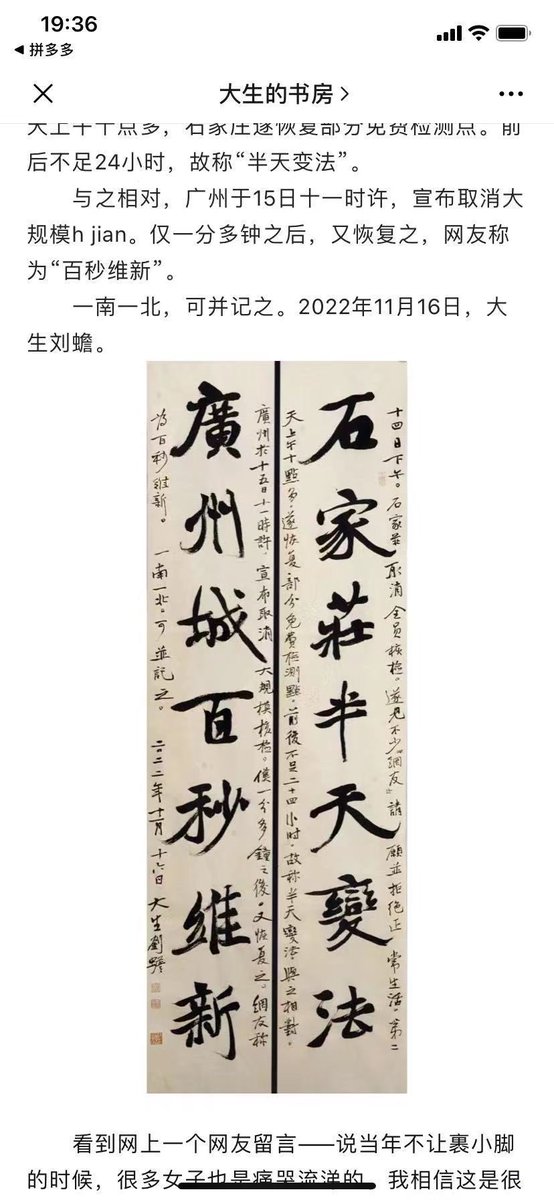 19:36
拼多多
大生的书房
天上午十点多，石家庄遂恢复部分免费检测点。前
后不足24小时，故称“半天变法”。
与之相对，广州于15日十一时许，宣布取消大
规模h jian。仅一分多钟之后，又恢复之，网友称
为“百秒维新”。
一南一北，可并记之。2022年11月16日，大
生刘蟾。
十四日下午。石家莊取消全员核检。遂見不少『網友』請願並拒绝正常生活。第二
石家莊半天變法
天上午十點多，遂恢复部分免費檢測點。前後不足二十四小时，故称半天變法。與之相對，
廣州於十五日十一時許，宣布取消大規模核检。僅一分多鐘之後，又恢复之。網友称
廣州城百秒維新
為百秒維新。一南一北。可並記之。二〇二二年十一月十六日大生劉蟾
看到网上一个网友留言——说当年不让裹小脚
的时候，很多女子也是痛哭流涕的。我相信这是很